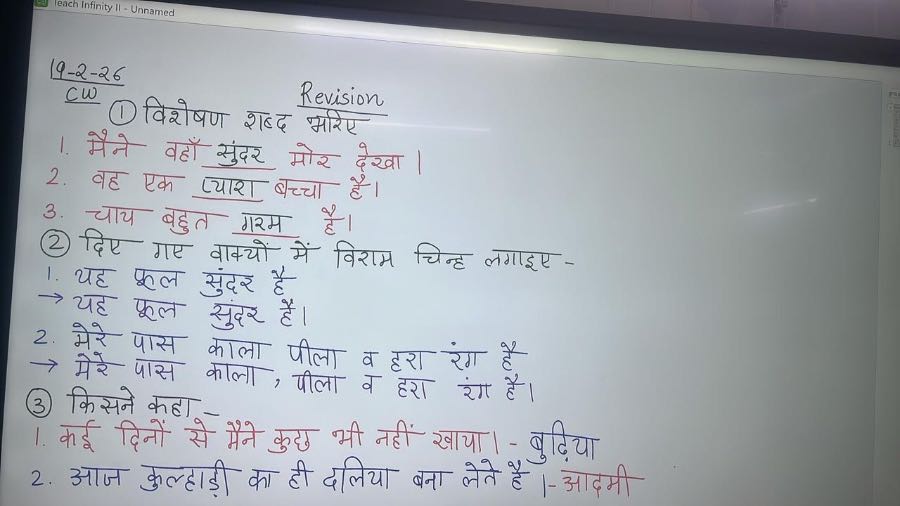 Teach Infinity II - Unnamed
19-2-26
CW
Revision
① विशेषण शब्द भरिए
1. मैने वहाँ सुंदर मोर देखा।
2. वह एक प्यारा बच्चा है।
3. चाय बहुत गरम है।
② दिए गए वाक्यों में विराम चिन्ह लगाइए -
1. यह फूल सुंदर है
→ यह फूल सुंदर है।
2. मेरे पास काला पीला व हरा रंग है
→ मेरे पास काला, पीला व हरा रंग है।
③ किसने कहा -
1. कई दिनों से मैने कुछ भी नहीं खाया। - बुढ़िया
2. आज कुल्हाड़ी का ही दलिया बना लेते है।- आदमी